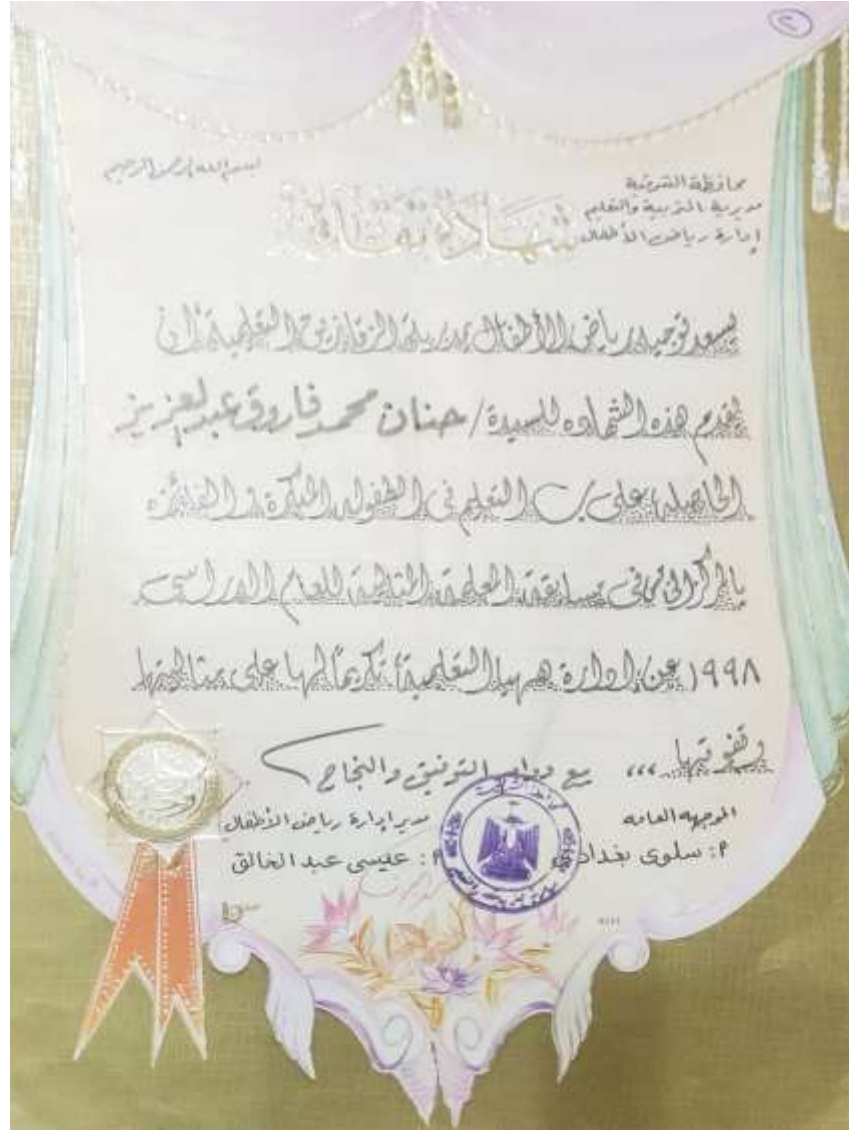 ٢
بسم الله الرحمن الرحيم
محافظة الشرقية
مديرية التربية والتعليم
إدارة رياض الأطفال
شهادة تقدير
يسعد توجيه رياض الأطفال بمديرية الزقازيق التعليمية أن
يقدم هذه الشهاده للسيدة / حنان محمد فاروق عبد العزيز
الحاصله على ب التعليم فى الطفوله المبكرة و الفائزه
بالمركز الثانى فى مسابقة المعلمة المثالية للعام الدراسى
١٩٩٨ عن إدارة ههيا التعليمية، تكريماً لها على مثاليتها
وتفوقها ،،، مع دوام التوفيق والنجاح
الموجهه العامه
م : سلوى بغدادى
مدير إدارة رياض الأطفال
م : عيسى عبد الخالق